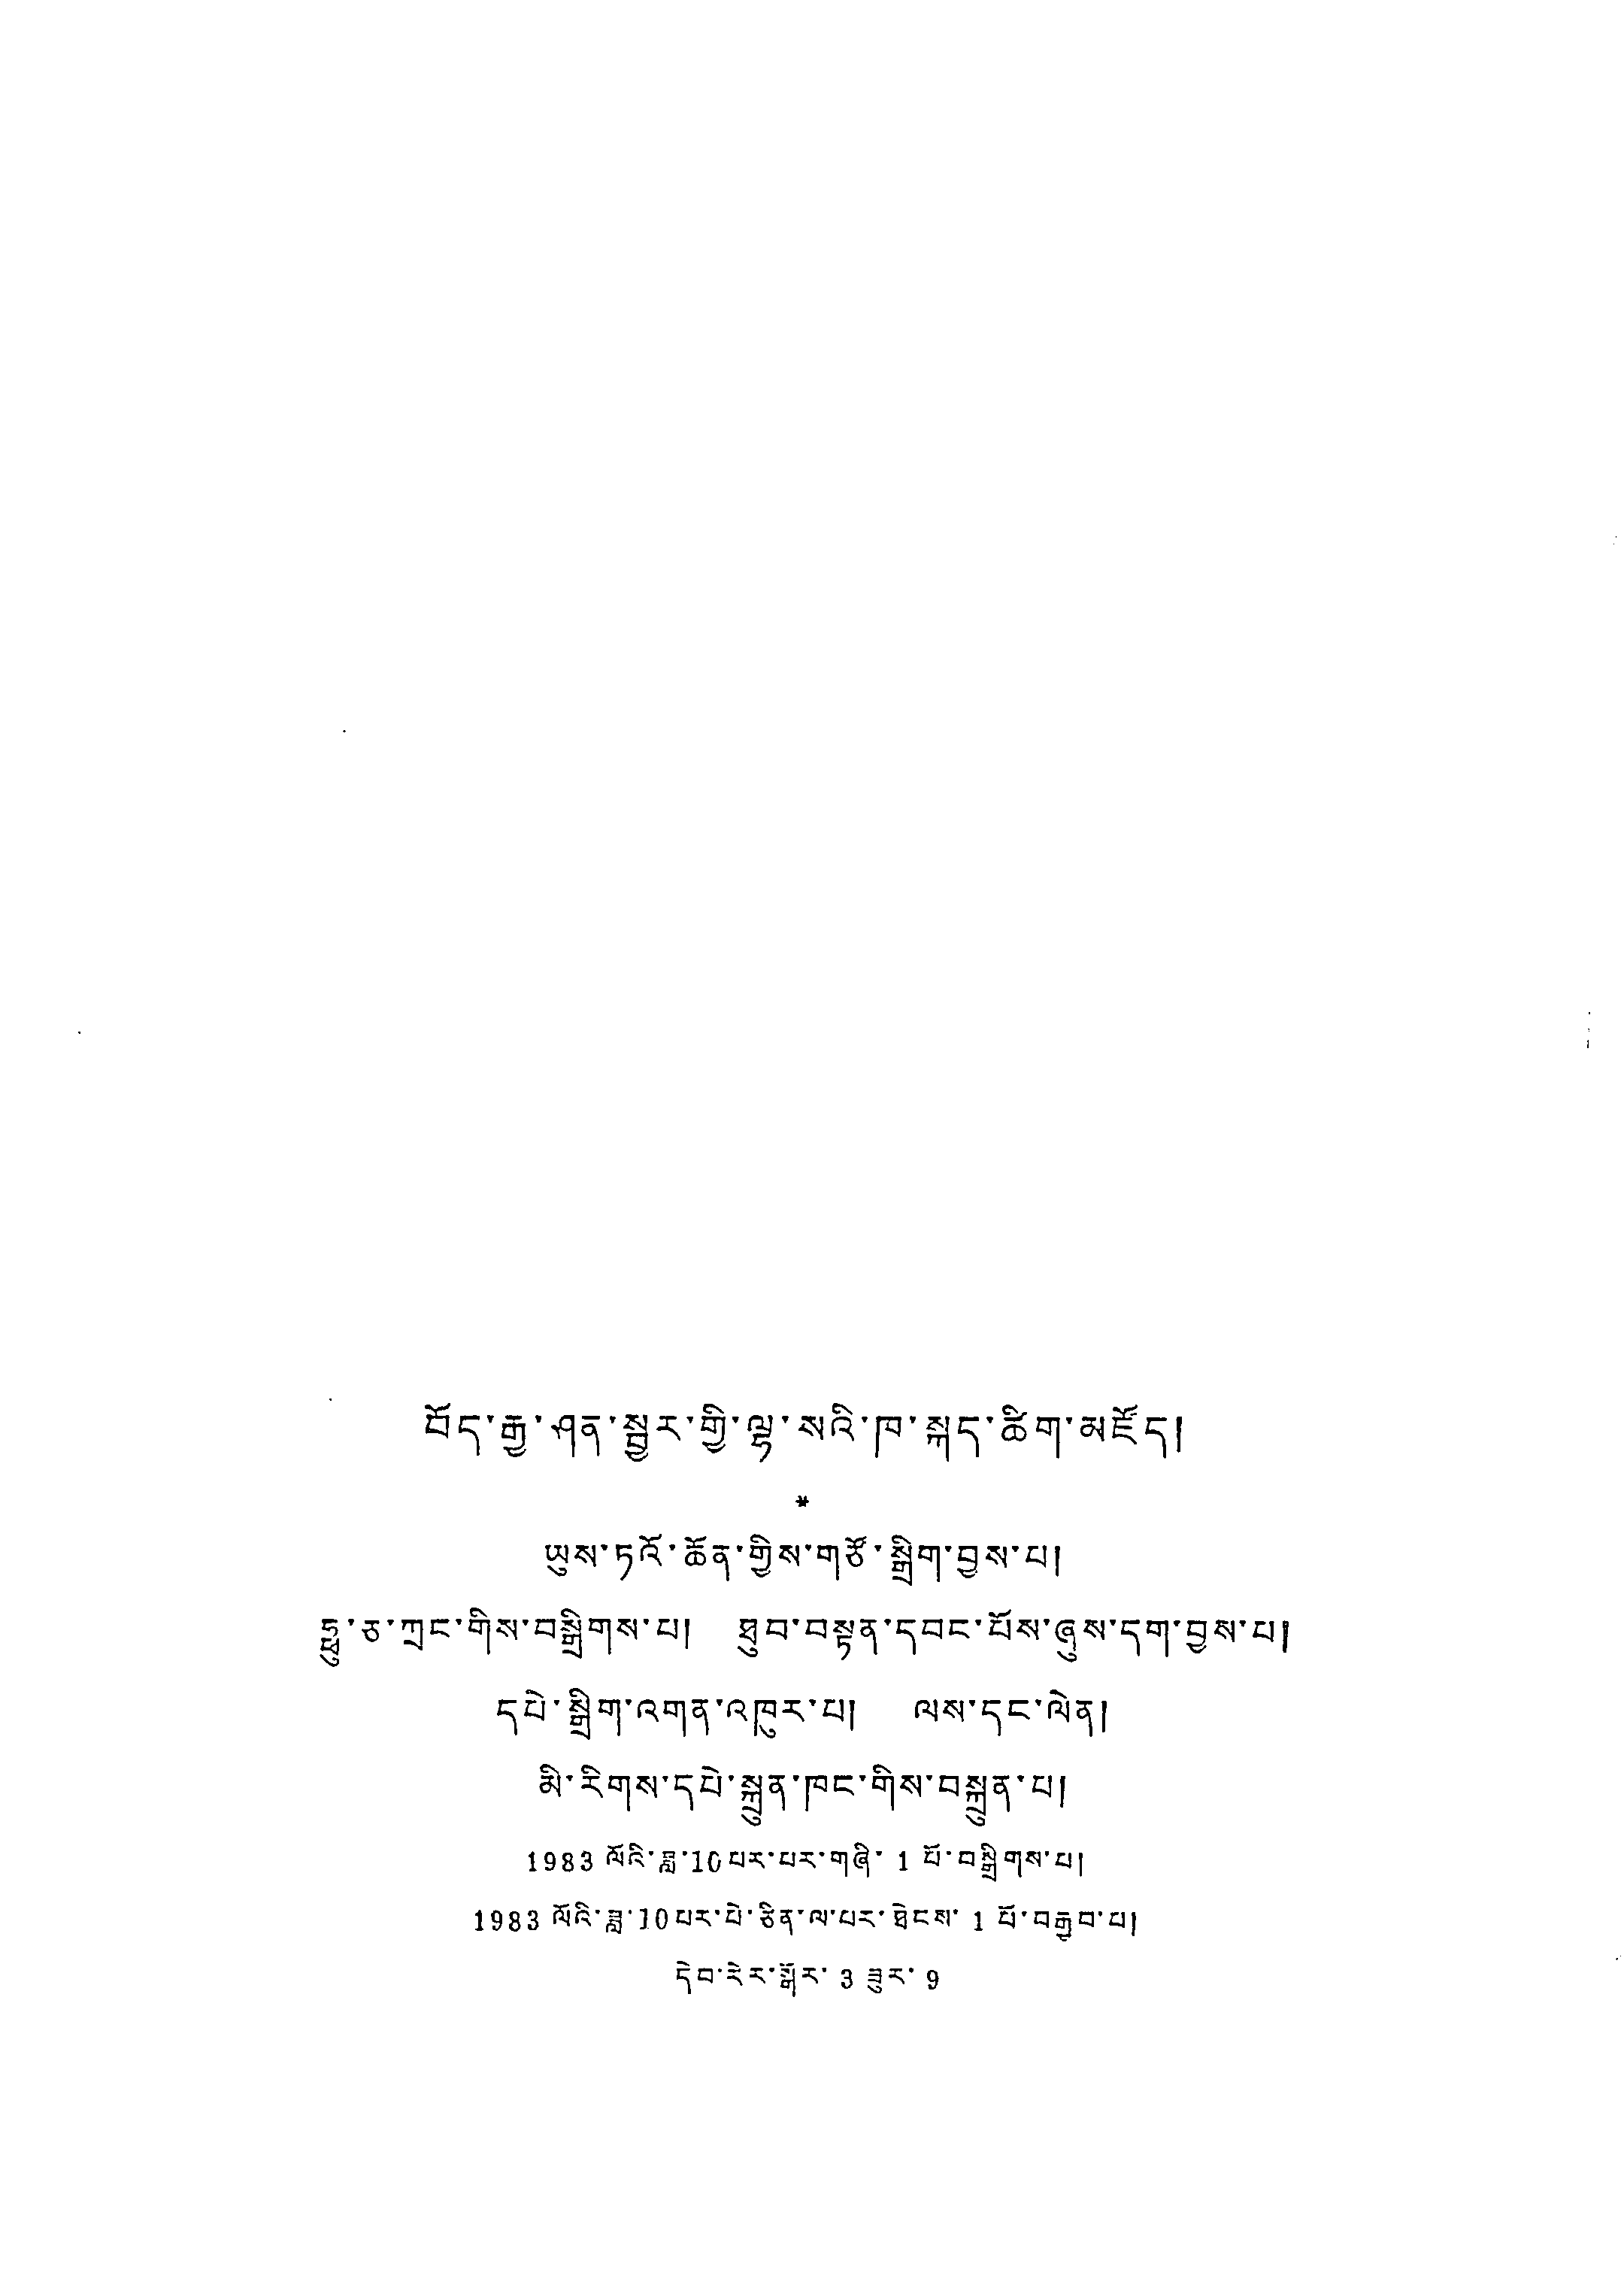 བོད་རྒྱ་ཤན་སྦྱར་གྱི་ལྷ་སའི་ཁ་སྐད་ཚིག་མཛོད།
*
ཡུས་ཏའོ་ཆོན་གྱིས་གཙོ་སྒྲིག་བྱས་པ།
ཅ་ཀྲང་གིས་བསྒྲིགས་པ། ཐུབ་བསྟན་དབང་པོས་ཞུས་དག་བྱས་པ།
དཔེ་སྒྲིག་འགན་འཁུར་པ། ལས་དང་ལེན།
མི་རིགས་དཔེ་སྐྲུན་ཁང་གིས་བསྐྲུན་པ།
1983 ལོའི་ཟླ་10པར་པར་གཞི་ 1 པོ་བསྒྲིགས་པ།
1983 ལོའི་ཟླ་10པར་པེ་ཅིན་ལ་པར་ཐེངས་ 1 པོ་བརྒྱབ་པ།
དེབ་རེར་སྒོར་ 3 ཟུར་ 9